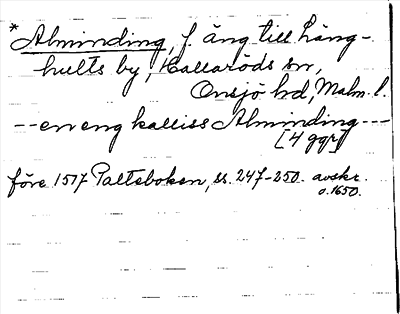 *Alminding, f. äng till Lång-
hults by, Hallaröds sn,
Onsjö hd, Malm. l.
-- en eng kalliss Alminding ---
[4 ggr]
före 1517 Palteboken, ss. 247-250. avskr.
o. 1650.